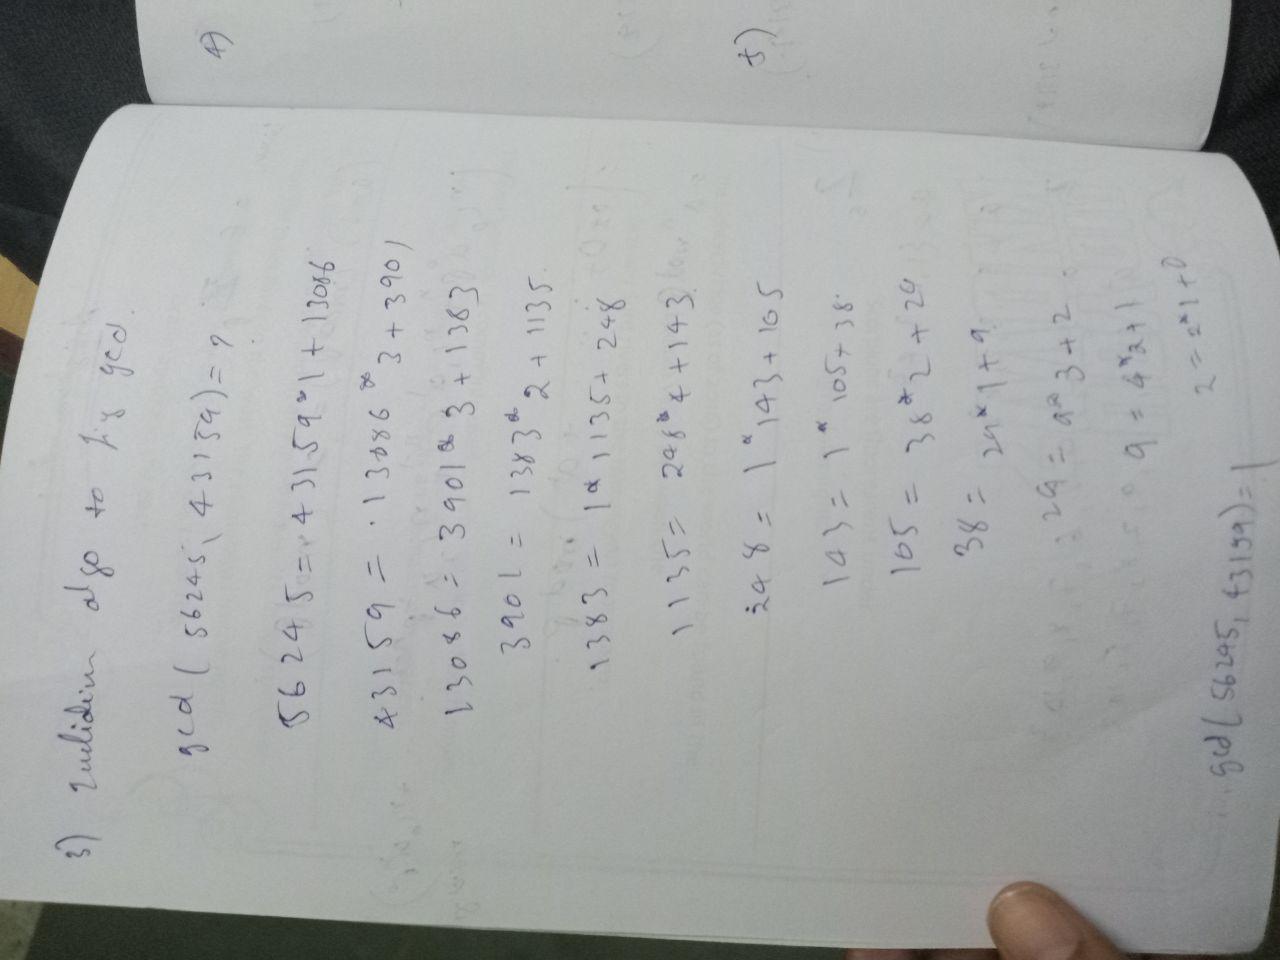 3) Euclidian algo to fig gcd.
gcd ( 56245, 43159) = ?
56245 = 43159*1+13086
43159 = 13086*3+3901
13086 = 3901*3+1383
3901 = 1383*2+1135
1383 = 1*1135+248
1135 = 248*4+143
248 = 1*143+105
143 = 1*105+38
105 = 38*2+29
38 = 29*1+9
29 = 9*3+2
9 = 4*2+1
2 = 2*1+0
gcd ( 56245, 43159) = 1
4)
5)